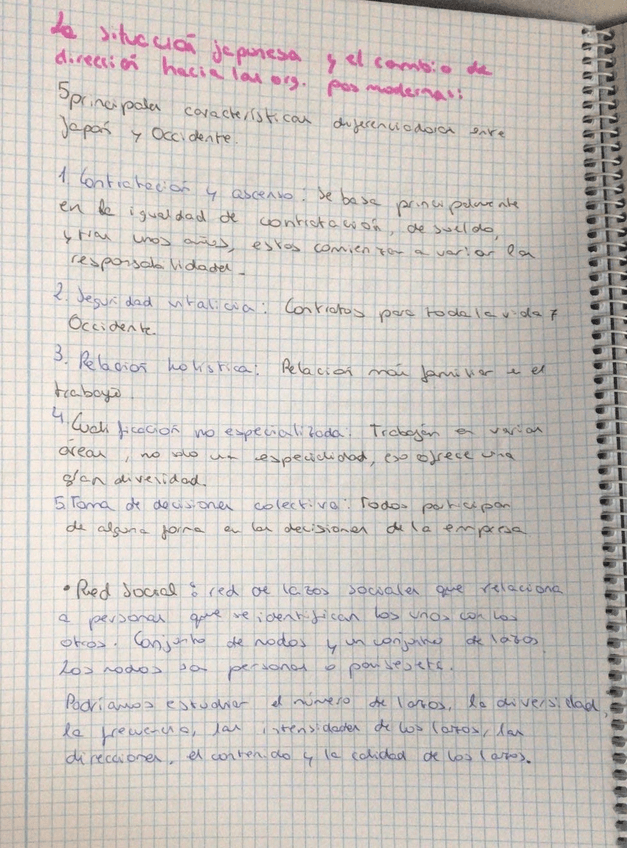 La situación japonesa y el cambio de
dirección hacia las org. posmodernas:
5 principales características diferenciadoras entre
Japón y Occidente.
1. Contratación y ascenso: Se basa principalmente
en la igualdad de contratación, de sueldo,
y tras unos años, estos comienzan a variar las
responsabilidades.
2. Seguridad vitalicia: Contratos para toda la vida ≠
Occidente.
3. Relación holística: Relación más familiar e el
trabajo.
4. Cualificación no especializada: Trabajan en varias
áreas, no solo un especialidad, eso ofrece una
gran diversidad.
5. Toma de decisiones colectiva: Todos participan
de alguna forma en las decisiones de la empresa
• Red Social: red de lazos sociales que relaciona
a personas que se identifican los unos con los
otros. Conjunto de nodos y un conjunto de lazos.
Los nodos son personas o países etc.
Podríamos estudiar el número de lazos, la diversidad,
la frecuencia, las intensidades de los lazos, las
direcciones, el contenido y la calidad de los lazos.